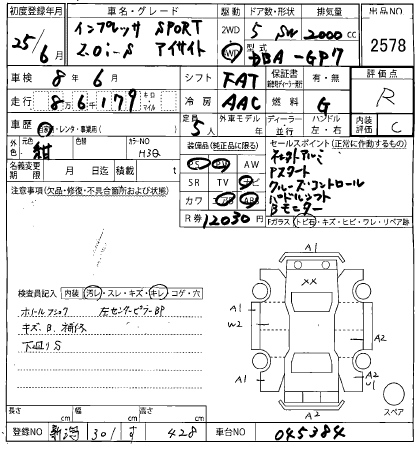 初度登録年月
25年6月
車名・グレード
インプレッサ SPORT
2.0i-S アイサイト
駆動
2WD
4WD
ドア数・形状
5 SW
排気量
2000 cc
型式
DBA-GP7
出品NO
2578
車検 8年6月
シフト FAT
保証書 有・無
評価点
R
走行 8万6千179 キロ マイル
冷房 AAC
燃料 G
車歴 自家・レンタ・事業用( )
定員 5人
外車モデル 年
ディーラー 並行
ハンドル 左・右
内装 C
外色 元色 紺
色替
カラーNO H3Q
名義変更期限 月 日迄
積載 t
装備品(純正品に限る)
PS PW AW
SR TV ナビ
カワ エアB ABS
R券 12030円
セールスポイント(正常に動作するもの)
Pスタート
クルーズ・コントロール
パドルシフト
Bモニター
Fガラス トビ石・キズ・ヒビ・ワレ・リペア跡
注意事項(欠品・修復・不具合箇所および状態)
検査員記入 内装 汚レ・スレ・キズ・キレ・コゲ・穴
左センターピラーBP
キズB、補修
下廻りS
A1
XX
A1
W2
A2
A1
A2
U1
A2
スペア
長さ cm
幅 cm
高さ cm
登録NO 新潟 301 す 428
車台NO 045384